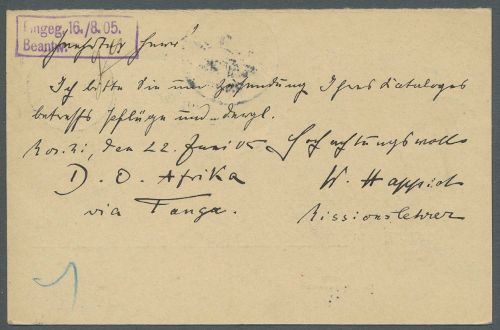 Eingeg. 16./8.05.
Beantw.
Geehrter Herr!
Ich bitte Sie um Zusendung Ihres Kataloges
betreffs Pflüge und dergl.
den 22. Juni 05 Hochachtungsvoll
D. O. Afrika W. Happich
via Tanga. Missionslehrer